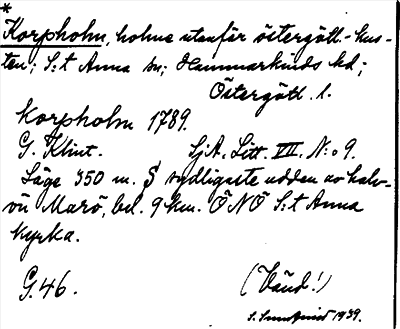 *
Korpholm, holme utanför östergötl.-kus-
ten; S:t Anna sn; Hammarkinds hd;
Östergötl. l.
Korpholm 1789.
G. Klint. SjA. Litt. VII. N:o 9.
Läge 350 m. S sydligaste udden av halv-
ön Marö, bel. 9 km. ÖNÖ S:t Anna
kyrka.
G. 46. (Vänd!)
S. Sundquist 1939.